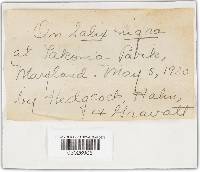 On Salix nigra
at Takoma Park,
Maryland. May 5, 1920
by Hedgcock, Hahn,
& Gravatt